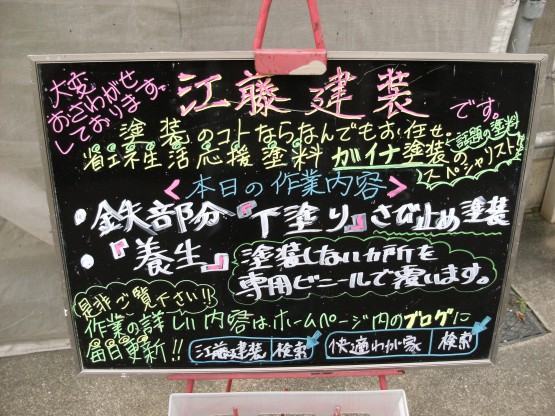 大変
おさわがせ
しております。
江藤建装
です。
塗装のコトならなんでもお任せ。
省エネ生活応援塗料 ガイナ塗装の
話題の塗料
スペシャリスト
<本日の作業内容>
・鉄部分『下塗り』さび止め塗装
・『養生』
塗装しないカ所を
専用ビニールで覆います。
是非ご覧下さい!!
作業の詳しい内容はホームページ内のブログに
毎日更新!!
江藤建装 検索
快適わが家 検索